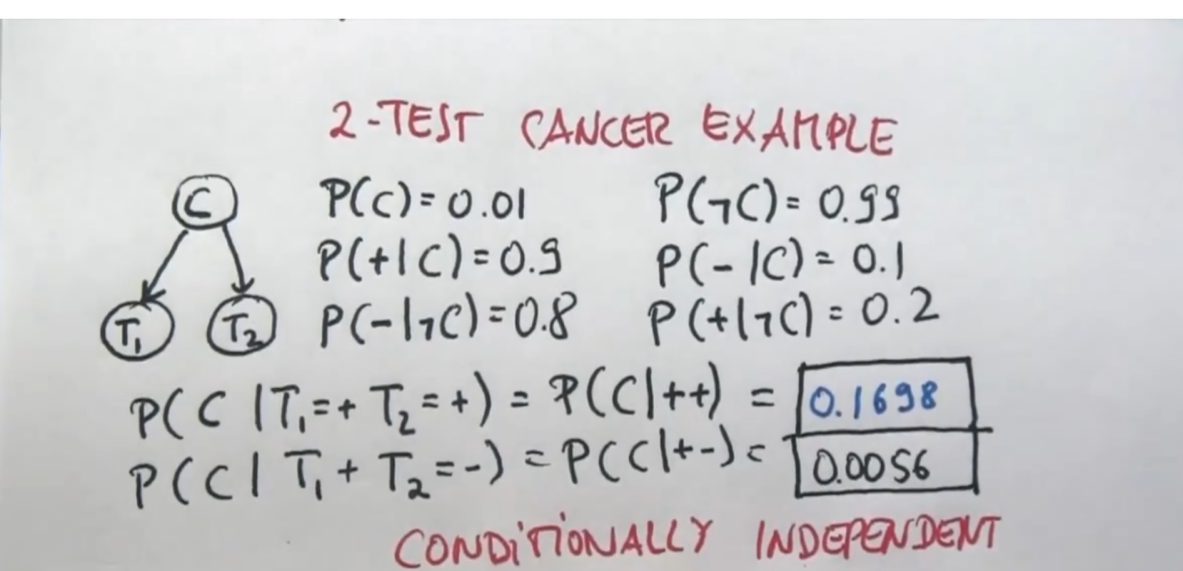 2-TEST CANCER EXAMPLE
C P(C)=0.01 P(¬C)=0.99
P(+|C)=0.9 P(-|C)=0.1
T₁ T₂ P(-|¬C)=0.8 P(+|¬C)=0.2
P(C|T₁=+ T₂=+) = P(C|++) = 0.1698
P(C|T₁+ T₂=-) = P(C|+-) = 0.0056
CONDITIONALLY INDEPENDENT